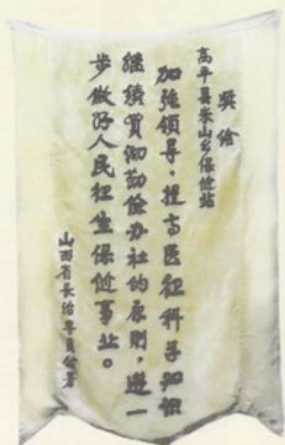 奖给
高平县米山乡保健站
加强领导，提高医疗科学知识
继续贯彻勤俭办社的原则，进一
步做好人民卫生保健事业。
山西省长治专员公署